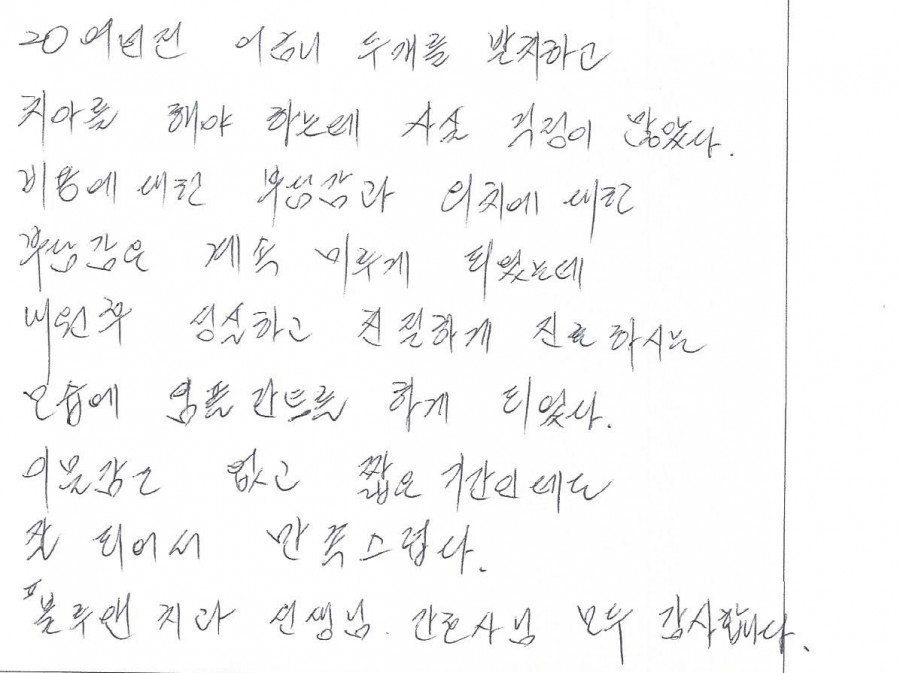 20여년전 어금니 두개를 발치하고
치아를 해야 하는데 사실 걱정이 많았다.
비용에 대한 부담감과 위치에 대한
부담감은 계속 미루게 되었는데
내원후 성실하고 친절하게 진료하시는
모습에 임플란트를 하게 되었다.
이물감도 없고 짧은 기간인데도
잘 되어서 만족스럽다.
블루앤 치과 선생님. 간호사님 모두 감사합니다.